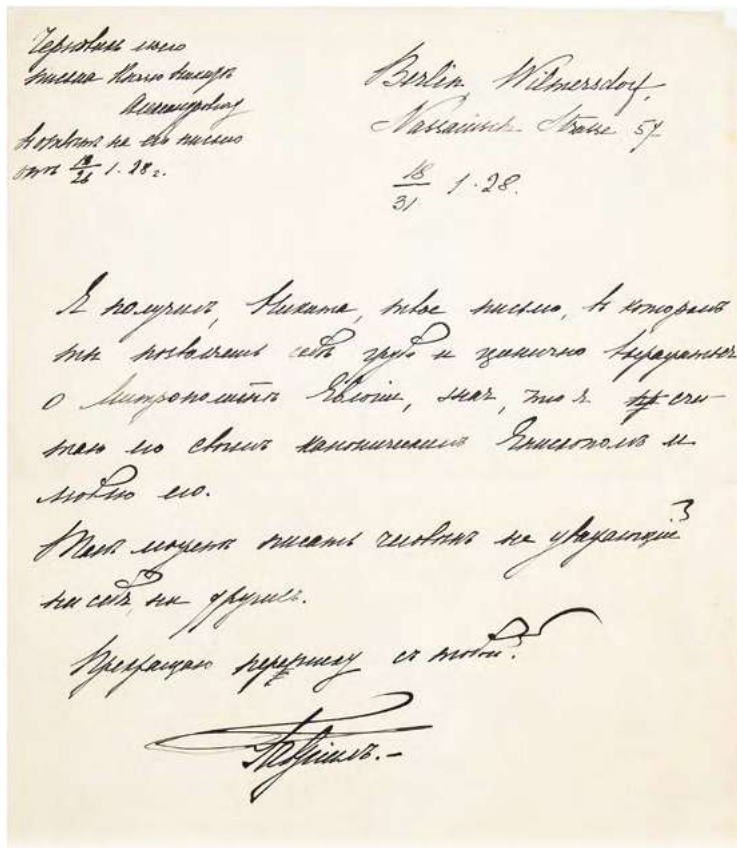 Черновикъ моего
письма Князю Никитѣ
Александровичу
въ отвѣтъ на его письмо
отъ 13/26 1. 28 г.
Berlin, Wilmersdorf,
Nassauisch. Strasse 57
18/31 1. 28.
Я получилъ, Никита, твое письмо, въ которомъ
ты позволяешь себѣ грубо и цинично выражаться
о Митрополитѣ Евлогіи, зная, что я счи-
таю его своимъ каноническимъ Епископомъ и
люблю его.
Такъ можетъ писать человѣкъ не уважающій
ни себя, ни другихъ.
Прекращаю переписку съ тобой.
Гавріилъ.-